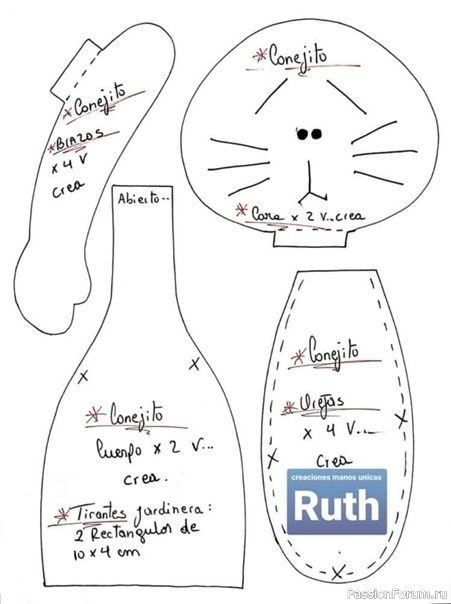 * Conejito
* Brazos
x 4 V
crea
* Conejito
* Cara x 2 V..crea
Abierto..
* Conejito
Cuerpo x 2 V...
crea.
* Tirantes jardinera:
2 Rectangulos de
10 x 4 cm
* Conejito
* Orejas
x 4 V...
crea
creaciones manos unicas
Ruth
PassionForum.ru